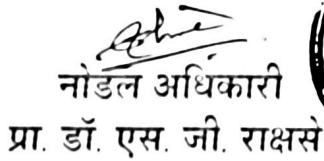 नोडल अधिकारी
प्रा. डॉ. एस. जी. राक्षसे